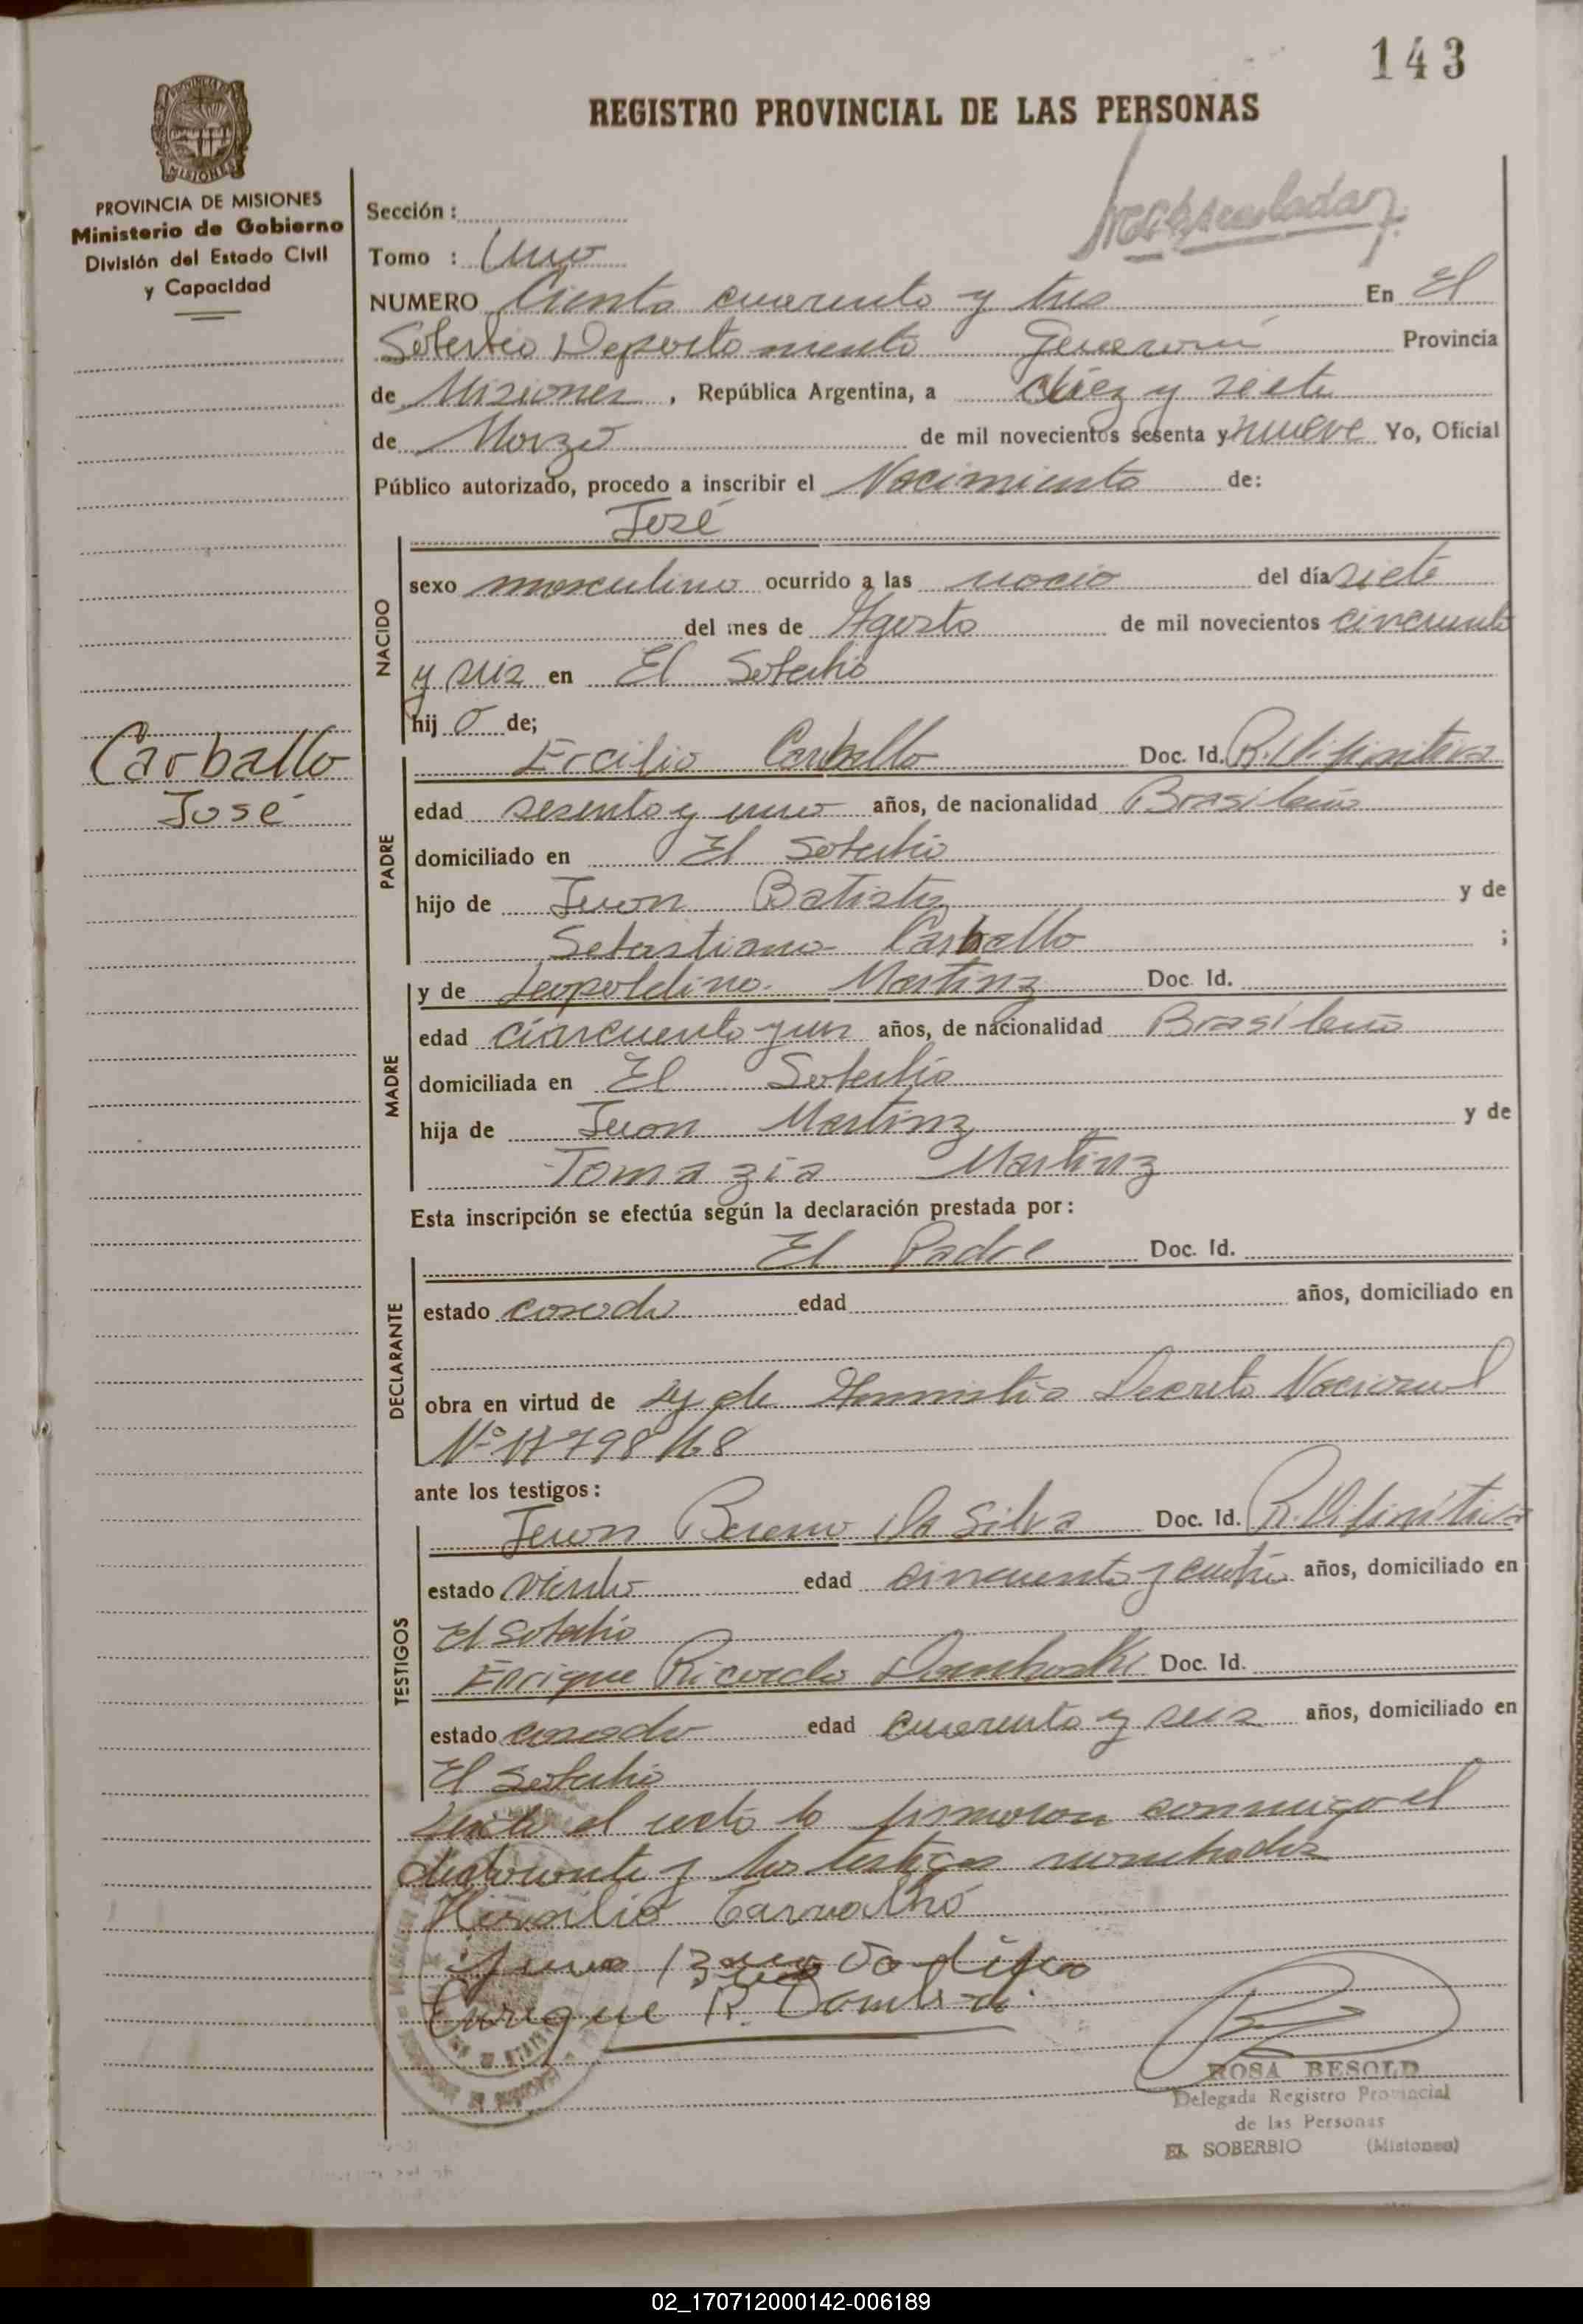 143
REGISTRO PROVINCIAL DE LAS PERSONAS
MISIONES
PROVINCIA DE MISIONES
Ministerio de Gobierno
División del Estado Civil
y Capacidad
Sección :
Tomo : Uno
NUMERO Ciento cuarenta y tres En El
Soberbio Departamento Guaraní Provincia
de Misiones , República Argentina, a diez y siete
de Marzo de mil novecientos sesenta y nueve Yo, Oficial
Público autorizado, procedo a inscribir el Nacimiento de:
José
NACIDO
sexo masculino ocurrido a las del día siete
del mes de Agosto de mil novecientos cincuenta
y seis en El Soberbio
hij o de;
Carballo
José
PADRE
Ercilio Carballo Doc. Id. R. Difinitiva
edad sesenta y uno años, de nacionalidad Brasileño
domiciliado en El Soberbio
hijo de Juan Batista y de
Sebastiana Carballo ;
MADRE
y de Leopoldina Martinz Doc. Id.
edad cincuenta y un años, de nacionalidad Brasileña
domiciliada en El Soberbio
hija de Juan Martinz y de
Tomazia Martinz
Esta inscripción se efectúa según la declaración prestada por:
DECLARANTE
El Padre Doc. Id.
estado casado edad años, domiciliado en
obra en virtud de Ley de Ammistia Decreto Nacional
Nº 17798/68
ante los testigos:
TESTIGOS
Juan Bueno Da Silva Doc. Id. R. Difinitiva
estado viudo edad cincuenta y cuatro años, domiciliado en
El Soberbio
Enrique Ricardo Domboski Doc. Id.
estado casado edad cuarenta y seis años, domiciliado en
El Soberbio
Leida el acta la firmaron conmigo el
declarante y los testigos nombrados
Hersilio Carvalho
Enrique R.
ROSA BESOLD
Delegada Registro Provincial
de las Personas
EL SOBERBIO (Misiones)
02_170712000142-006189